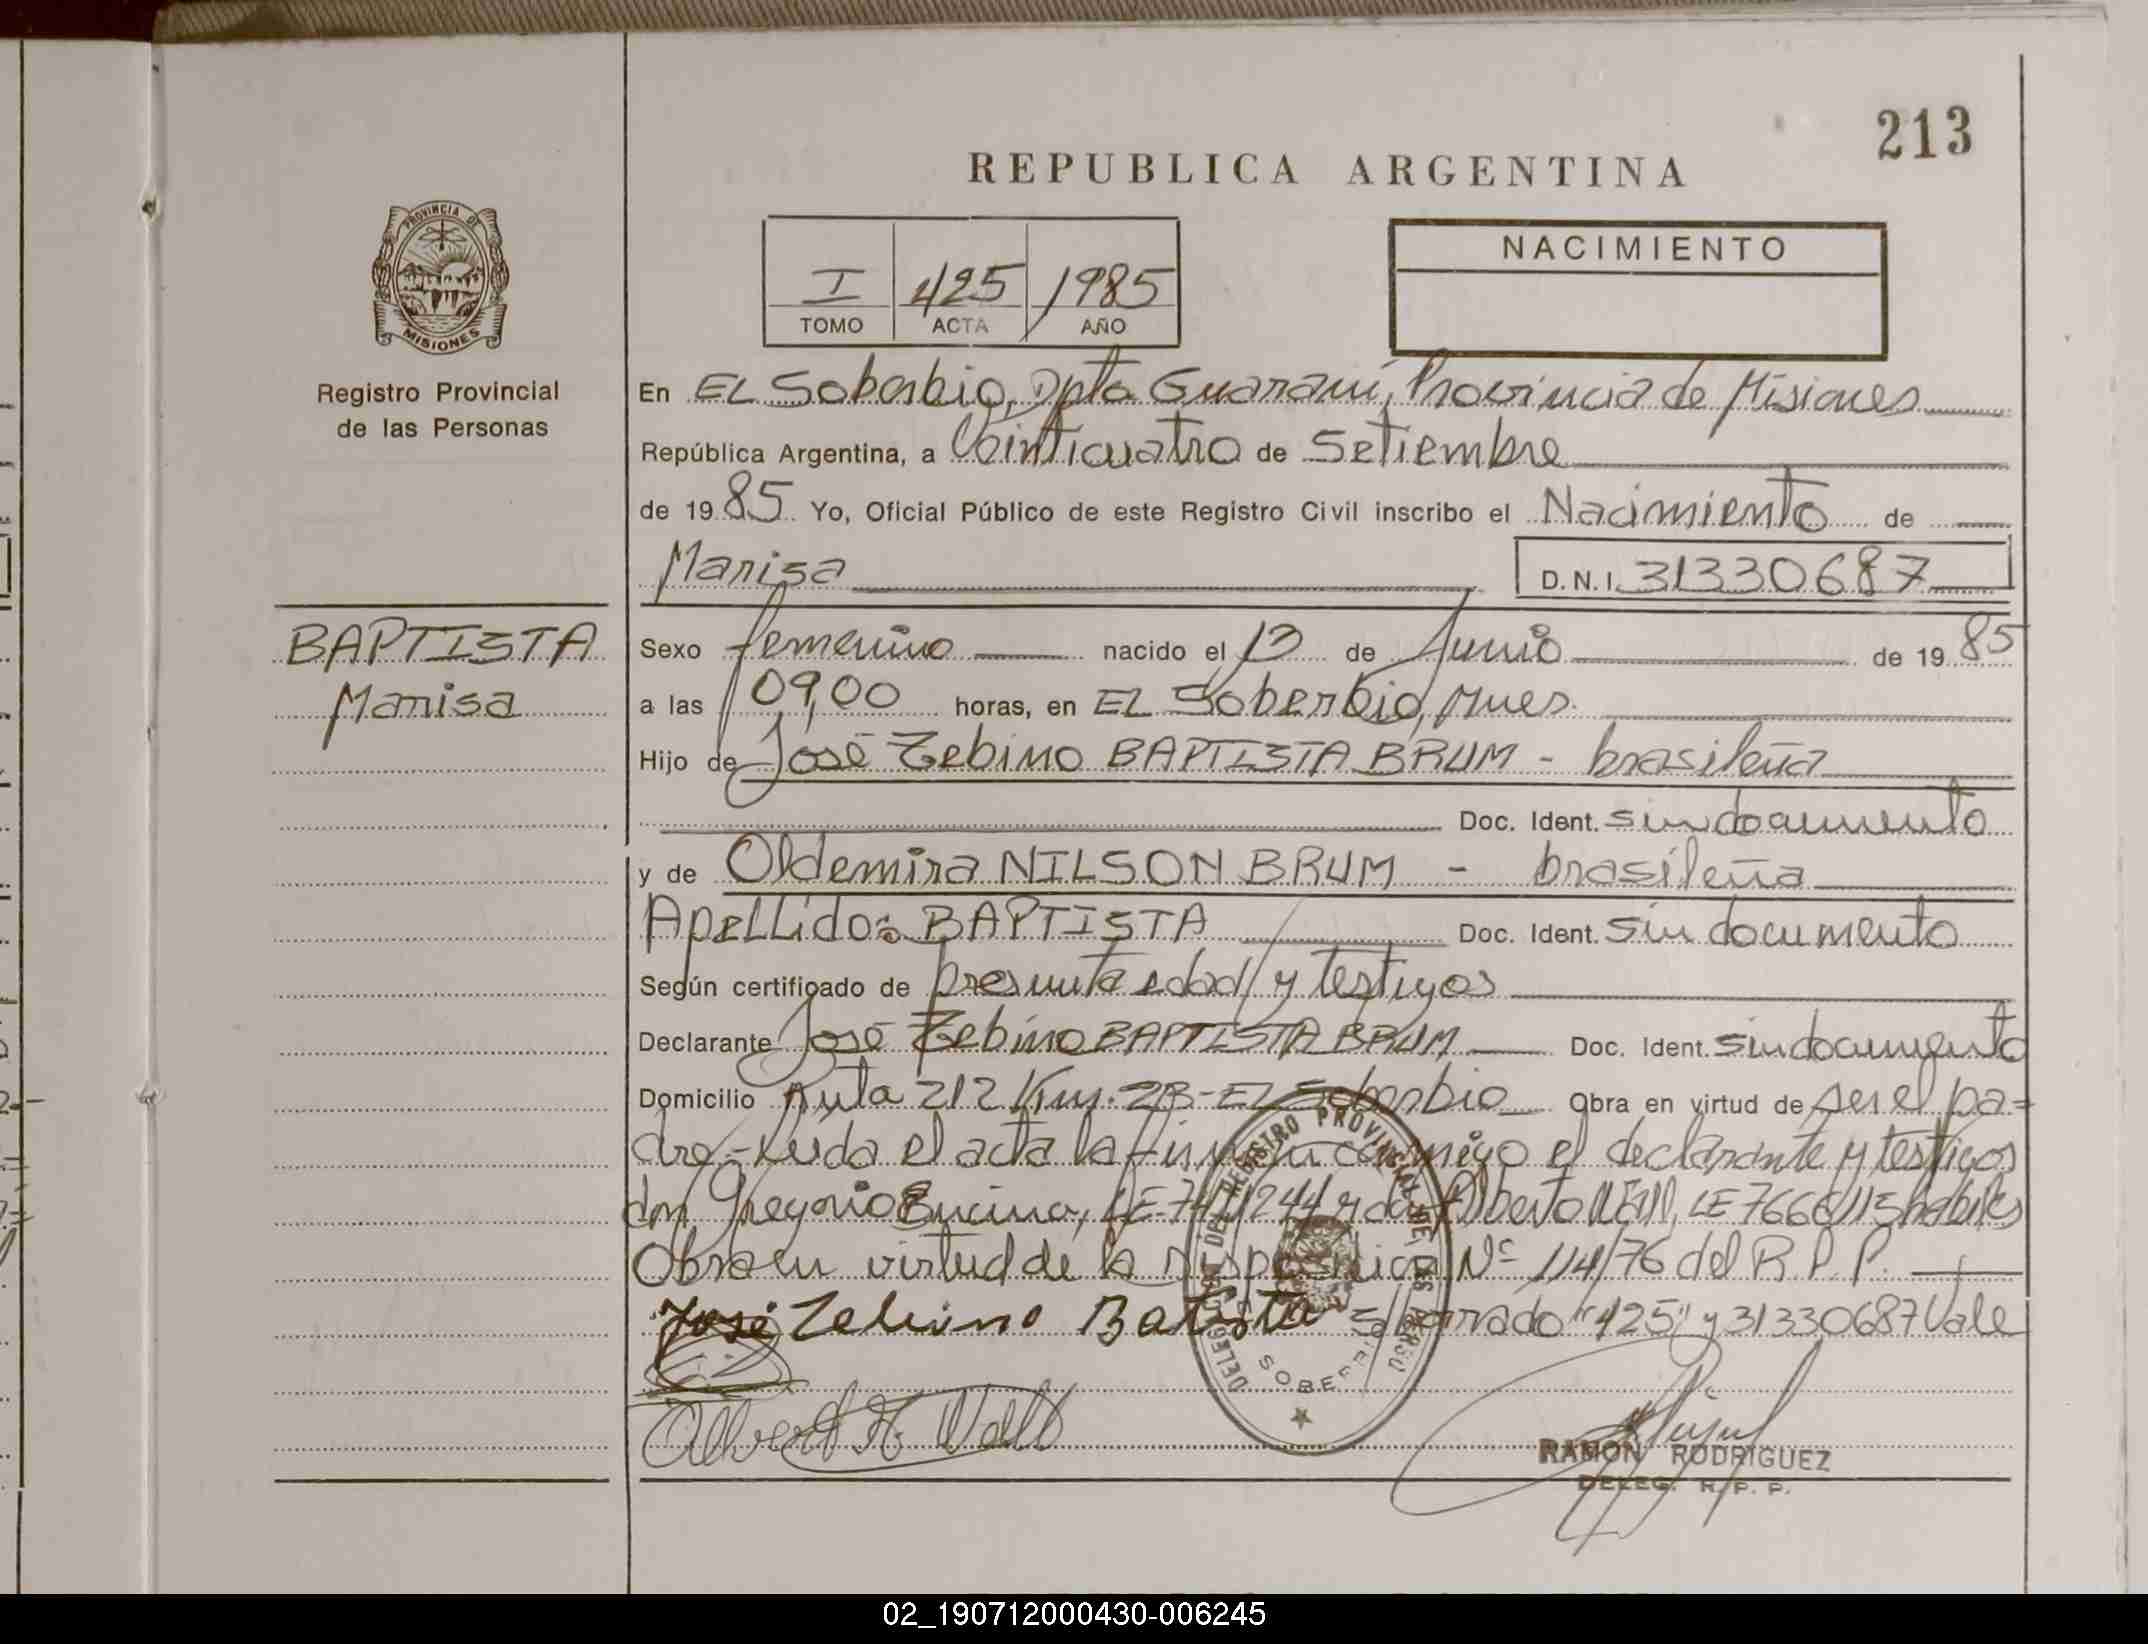 213
REPUBLICA ARGENTINA
PROVINCIA DE
MISIONES
Registro Provincial
de las Personas
I 425 1985
TOMO ACTA AÑO
NACIMIENTO
En EL Soberbio, Dpto Guaraní, Provincia de Misiones
República Argentina, a Veinticuatro de Setiembre
de 1985 Yo, Oficial Público de este Registro Civil inscribo el Nacimiento de
Marisa D.N.I. 31330687
BAPTISTA
Marisa
Sexo femenino nacido el 13 de Junio de 1985
a las 09,00 horas, en EL Soberbio, Mnes.
Hijo de José Zebino BAPTISTA BRUM - brasileña
Doc. Ident. sin documento
y de Oldemira NILSON BRUM - brasileña
Apellido: BAPTISTA Doc. Ident. sin documento
Según certificado de presunta edad y testigos
Declarante José Zebino BAPTISTA BRUM Doc. Ident. sin documento
Domicilio Ruta 212 Km. 28 - EL Soberbio Obra en virtud de ser el pa=
dre - Leida el acta la firman conmigo el declarante y testigos
don Gregorio Encina, LE y don Alberto LE habiles
Obra en virtud de la Disposicion Nº 114/76 del R.P.P.
José Zebino Batista S/borrado "425" y 31330687 Vale
DELEGACION DEL REGISTRO PROVINCIAL DE LAS PERSO
SOBERBIO
RAMON RODRIGUEZ
DELEG. R. P. P.
02_190712000430-006245